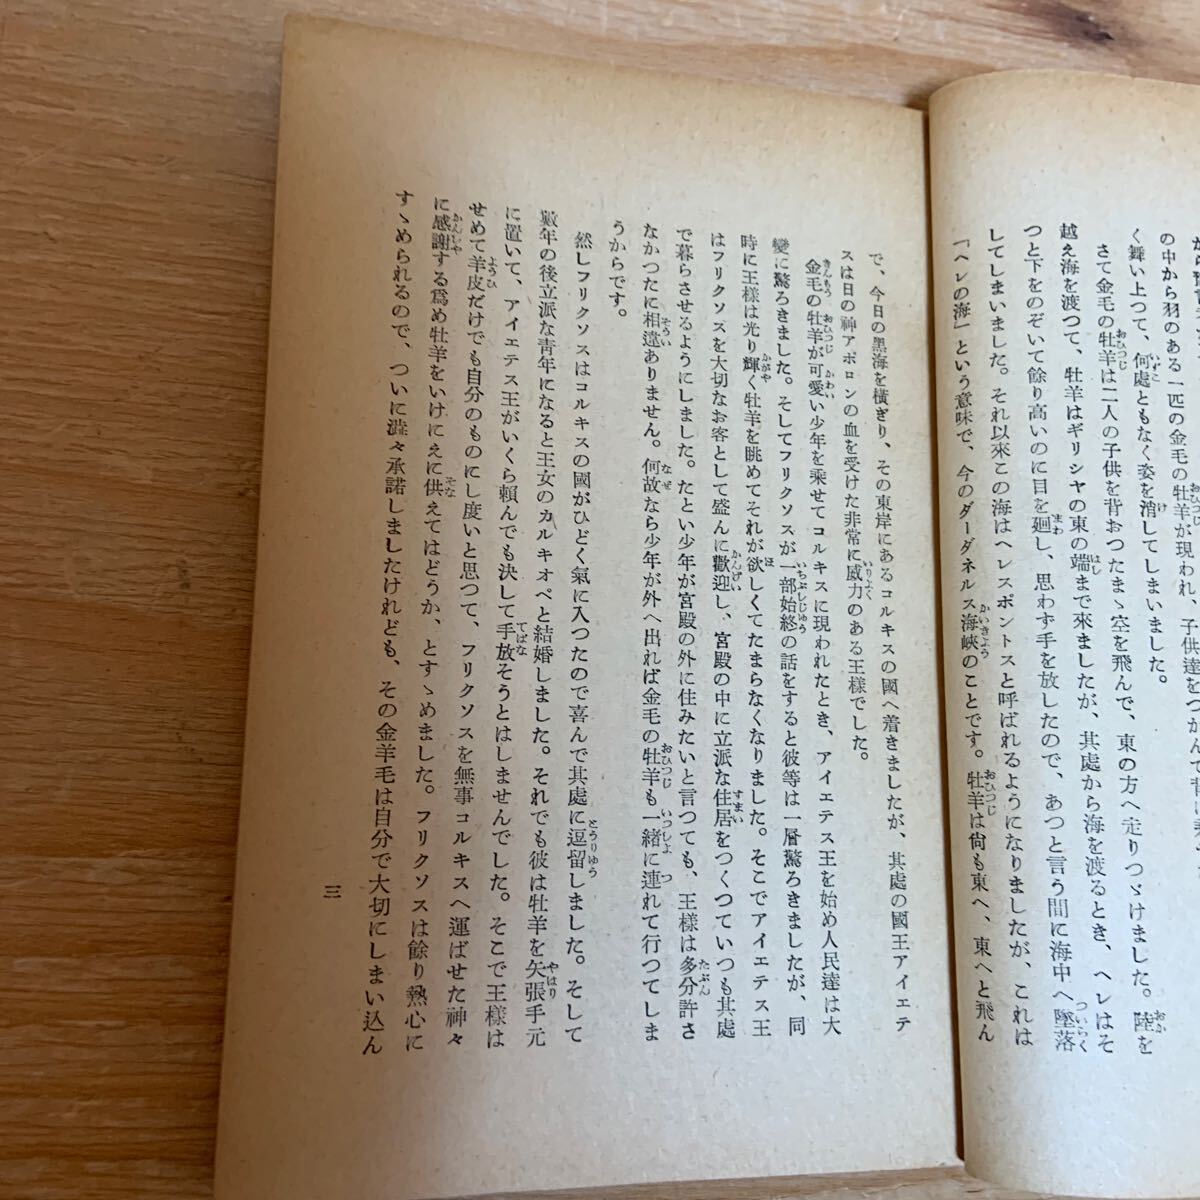 の中から羽のある一匹の金毛の牡羊が現われ、子供達をつかんで背に
く舞い上つて、何處ともなく姿を消してしまいました。
さて金毛の牡羊は二人の子供を背おつたまゝ空を飛んで、東の方へ走りつゞけました。陸を
越え海を渡つて、牡羊はギリシヤの東の端まで來ましたが、其處から海を渡るとき、ヘレはそ
つと下をのぞいて餘り高いのに目を廻し、思わず手を放したので、あつと言う間に海中へ墜落
してしまいました。それ以來この海はヘレスポントスと呼ばれるようになりましたが、これは
「ヘレの海」という意味で、今のダーダネルス海峽のことです。牡羊は尙も東へ、東へと飛ん
で、今日の黑海を橫ぎり、その東岸にあるコルキスの國へ着きましたが、其處の國王アイェテ
スは日の神アポロンの血を受けた非常に威力のある王樣でした。
金毛の牡羊が可愛い少年を乘せてコルキスに現われたとき、アイェテス王を始め人民達は大
變に驚ろきました。そしてフリクソスが一部始終の話をすると彼等は一層驚ろきましたが、同
時に王樣は光り輝く牡羊を眺めてそれが欲しくてたまらなくなりました。そこでアイェテス王
はフリクソスを大切なお客として盛んに歡迎し、宮殿の中に立派な住居をつくつていつも其處
で暮らさせるようにしました。たとい少年が宮殿の外に住みたいと言つても、王樣は多分許さ
なかつたに相違ありません。何故なら少年が外へ出れば金毛の牡羊も一緖に連れて行つてしま
うからです。
然しフリクソスはコルキスの國がひどく氣に入つたので喜んで其處に逗留しました。そして
數年の後立派な靑年になると王女のカルキオペと結婚しました。それでも彼は牡羊を矢張手元
に置いて、アイェテス王がいくら賴んでも決して手放そうとはしませんでした。そこで王樣は
せめて羊皮だけでも自分のものにし度いと思つて、フリクソスを無事コルキスへ運ばせた神々
に感謝する爲め牡羊をいけにえに供えてはどうか、とすゝめました。フリクソスは餘り熱心に
すゝめられるので、ついに澁々承諾しましたけれども、その金羊毛は自分で大切にしまい込ん
三